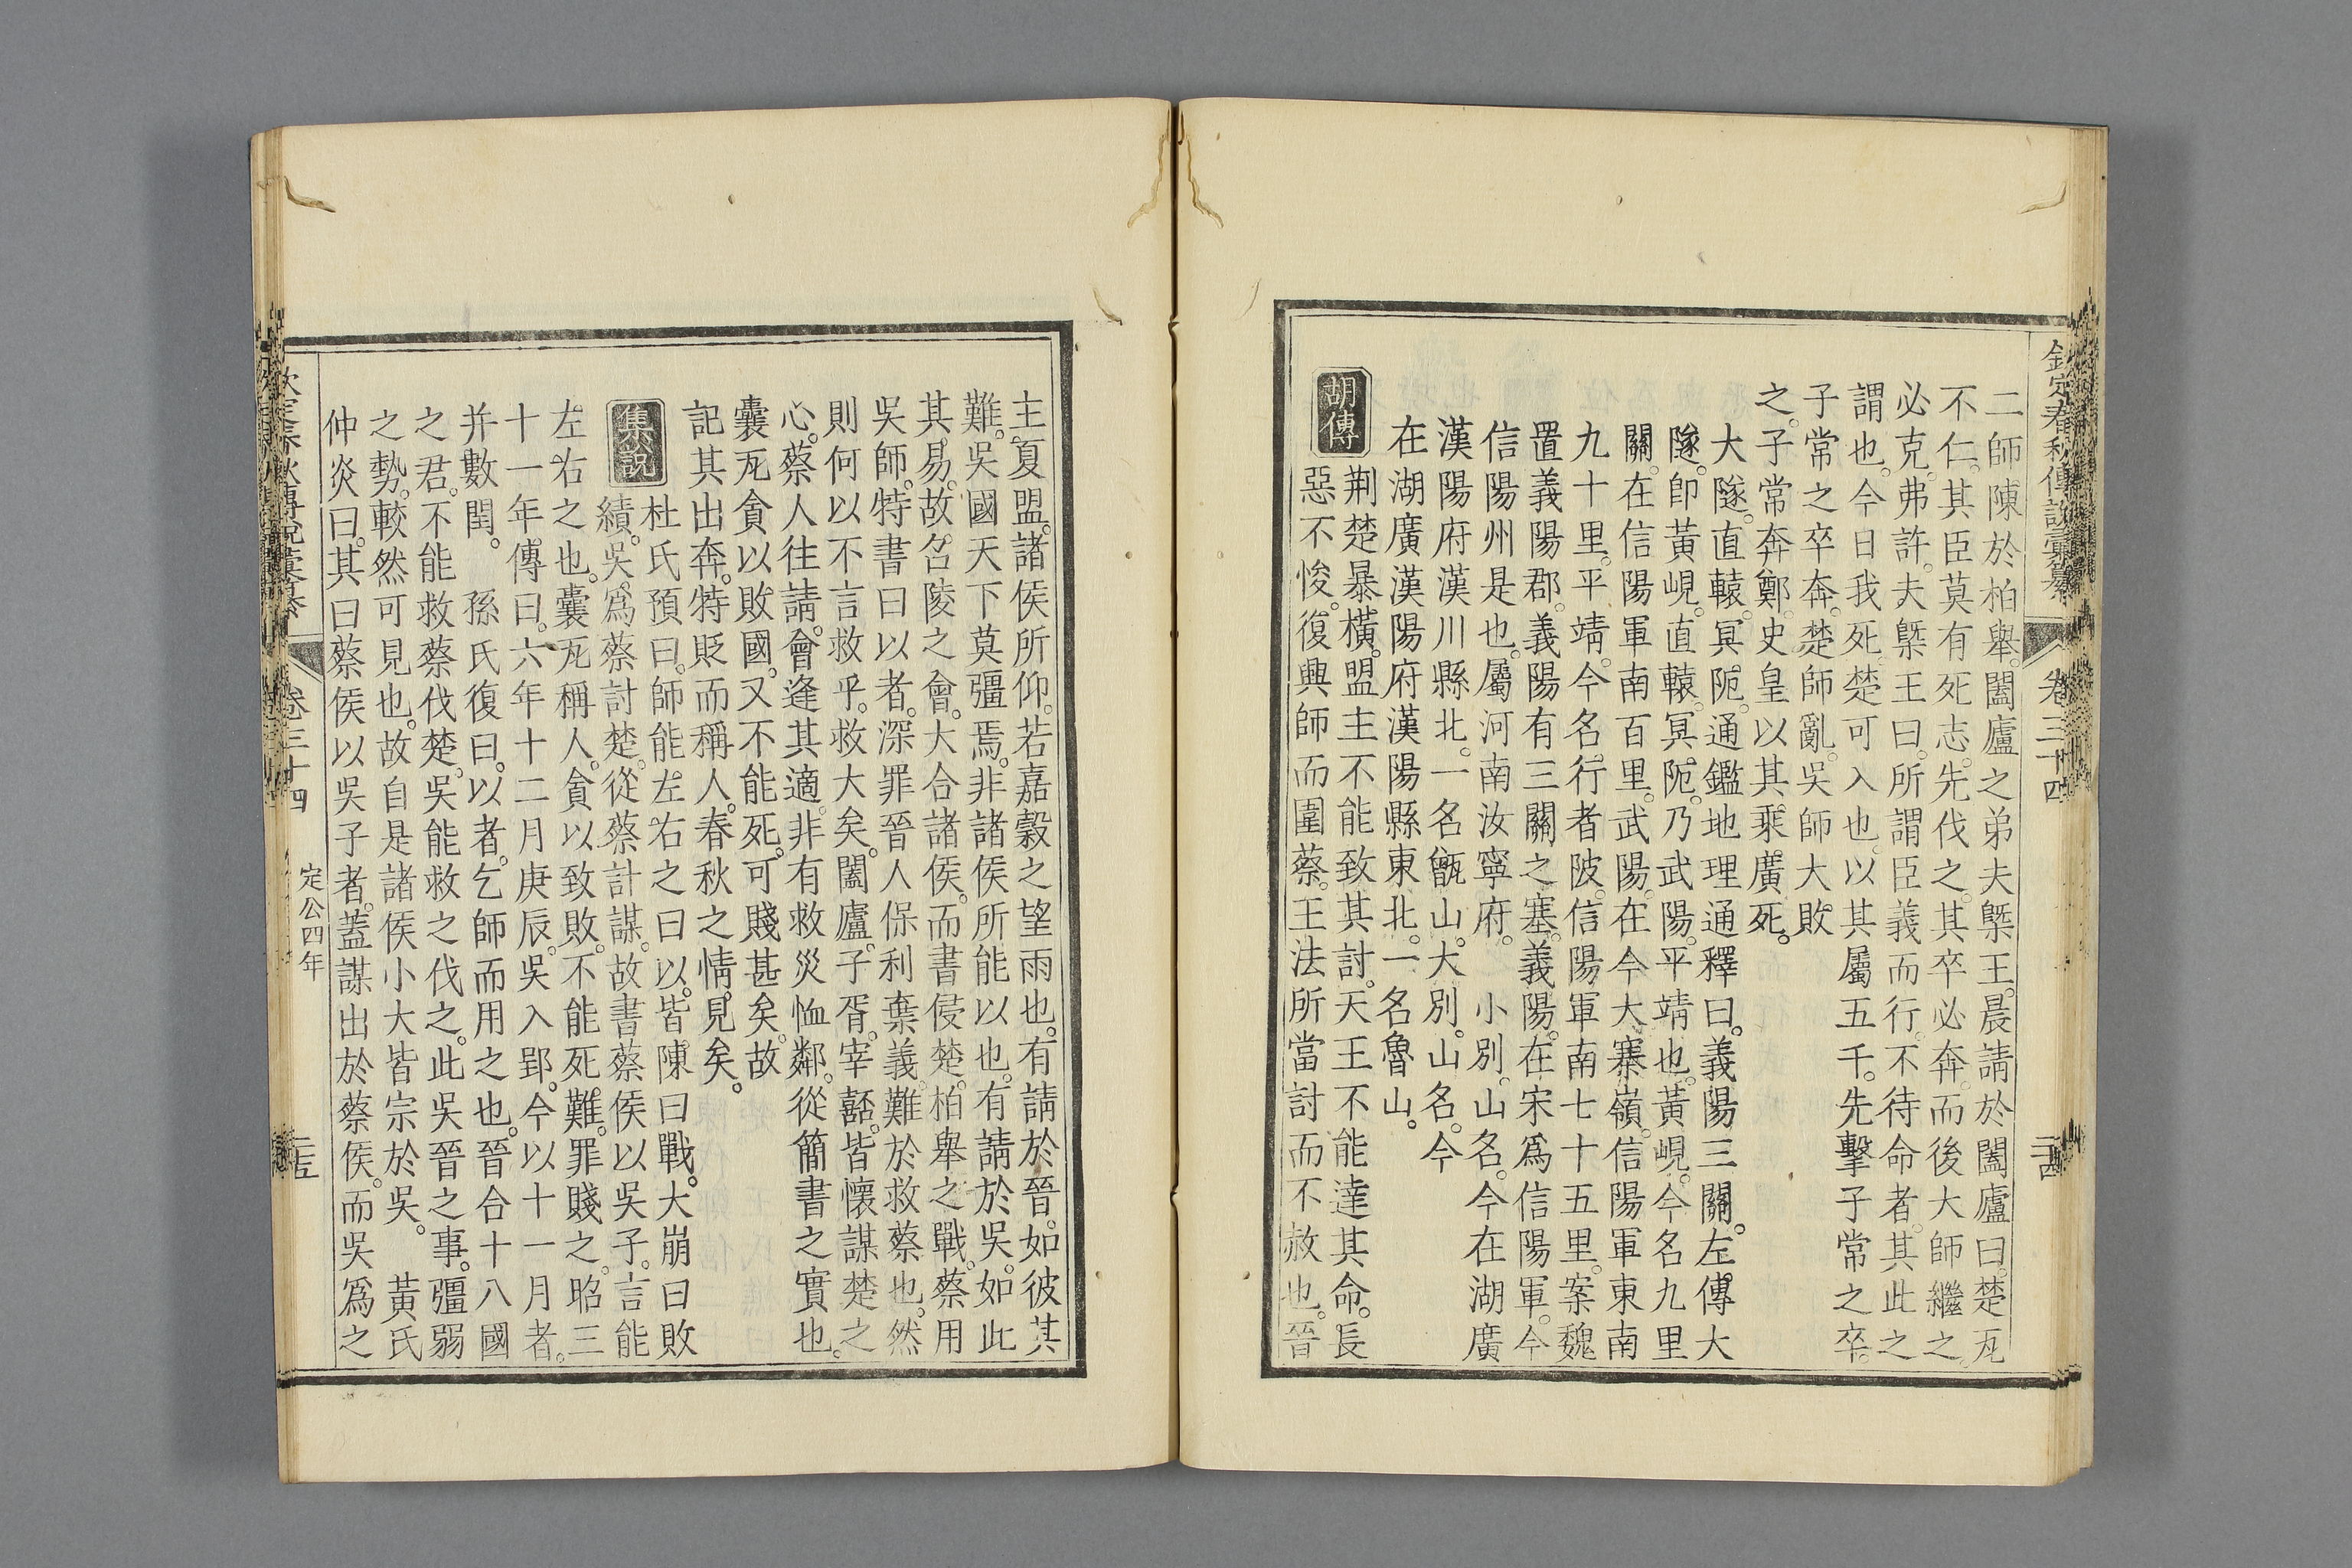 欽定春秋傳說彙纂 卷三十四 二十四
二師陳於柏舉。闔廬之弟夫槩王。晨請於闔廬曰。楚瓦
不仁。其臣莫有死志。先伐之。其卒必奔。而後大師繼之。
必克。弗許。夫槩王曰。所謂臣義而行。不待命者。其此之
謂也。今日我死。楚可入也。以其屬五千。先擊子常之卒。
子常之卒奔。楚師亂。吳師大敗
之。子常奔鄭。史皇以其乘廣死。
大隧。直轅。冥阨。通鑑地理通釋曰。義陽三關。左傳大
隧。卽黃峴。直轅。冥阨。乃武陽。平靖也。黃峴。今名九里
關。在信陽軍南百里。武陽。在今大寨嶺。信陽軍東南
九十里。平靖。今名。行者陂。信陽軍南七十五里。案魏
置義陽郡。義陽有三關之塞。義陽。在宋爲信陽軍。今
信陽州是也。屬河南汝寧府。 小別。山名。今在湖廣
漢陽府漢川縣北。一名甑山。大別。山名。今
在湖廣漢陽府漢陽縣東北。一名魯山。
胡傳
荆楚暴橫。盟主不能致其討。天王不能達其命。長
惡不悛。復興師而圍蔡。王法所當討而不赦也。晉
主夏盟。諸侯所仰。若嘉穀之望雨也。有請於晉。如彼其
難。吳國天下莫彊焉。非諸侯所能以也。有請於吳。如此
其易。故召陵之會。大合諸侯。而書侵楚。柏舉之戰。蔡用
吳師。特書曰以者。深罪晉人保利棄義。難於救蔡也。然
則何以不言救乎。救大矣。闔廬。子胥。宰嚭。皆懷謀楚之
心。蔡人往請。會逢其適。非有救災恤鄰。從簡書之實也。
囊瓦貪以敗國。又不能死。可賤甚矣。故
記其出奔。特貶而稱人。春秋之情見矣。
集說
杜氏預曰。師能左右之曰以。皆陳曰戰。大崩曰敗
績。吳爲蔡討楚。從蔡計謀。故書蔡侯以吳子。言能
左右之也。囊瓦稱人。貪以致敗。不能死難。罪賤之。昭三
十一年。傳曰。六年十二月庚辰。吳入郢。今以十一月者。
并數閏。 孫氏復曰。以者。乞師而用之也。晉合十八國
之君。不能救蔡伐楚。吳能救之伐之。此吳晉之事。彊弱
之勢。較然可見也。故自是諸侯小大皆宗於吳。 黃氏
仲炎曰。其曰蔡侯以吳子者。蓋謀出於蔡侯。而吳爲之
欽定春秋傳說彙纂 卷三十四 定公四年 二十五